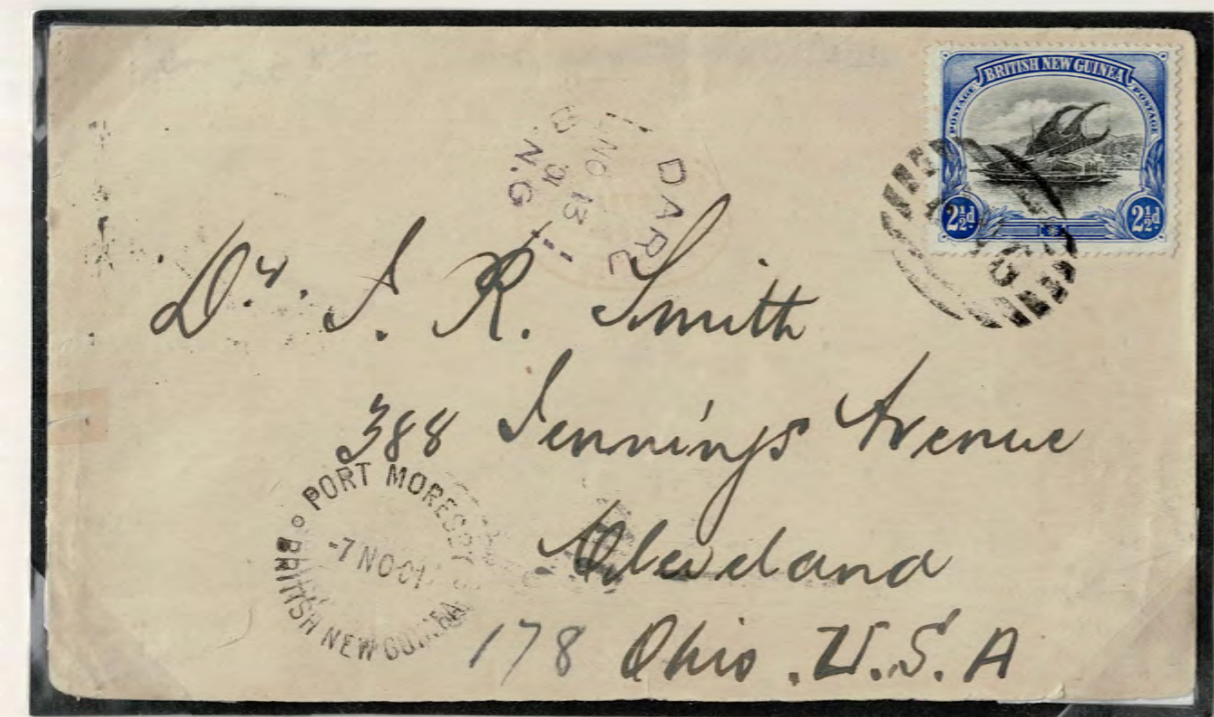 BRITISH NEW GUINEA
POSTAGE POSTAGE
2½d 2½d
DARU
NO 13
01
B.N.G
Dr. J. R. Smith
388 Jennings Avenue
Cleveland
178 Ohio. U.S.A
PORT MORESBY
-7 NO 01
BRITISH NEW GUINEA